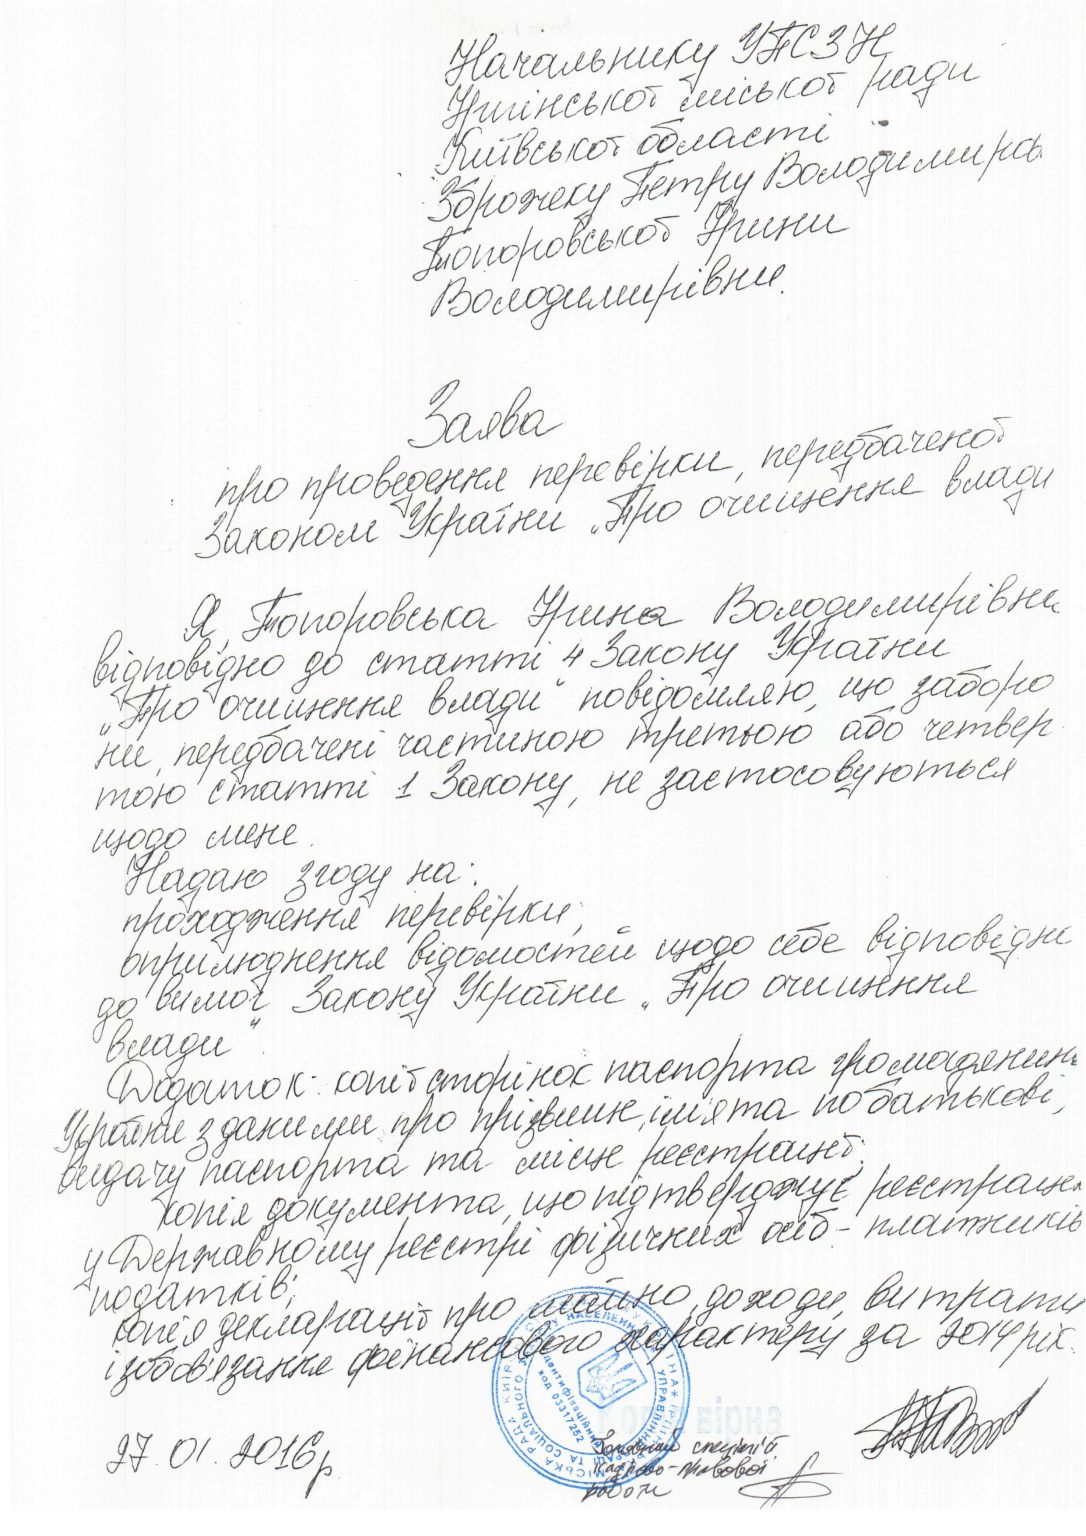 Начальнику УПСЗН
Ірпінської міської ради
Київської області
Зброжеку Петру Володимирови
Топоровської Ірини
Володимирівни.
Заява
про проведення перевірки, передбаченої
Законом України „Про очищення влади
Я, Топоровська Ірина Володимирівна
відповідно до статті 4 Закону України
„Про очищення влади" повідомляю, що заборо
ни, передбачені частиною третьою або четвер
тою статті 1 Закону, не застосовуються
щодо мене.
Надаю згоду на:
проходження перевірки;
оприлюднення відомостей щодо себе відповідно
до вимог Закону України „Про очищення
влади".
Додаток: копії сторінок паспорта громадянина
України з даними про прізвище, ім'я та по батькові,
видачу паспорта та місце реєстрації;
копія документа, що підтверджує реєстрацію
у Державному реєстрі фізичних осіб - платників
податків;
копія декларації про майно, доходи, витрати
і зобов'язання фінансового характеру за 2014 рік.
ідентифікаційний
код 03317252
вірна
27.01.2016р
Головний спеціаліст
кадрово-правової
роботи